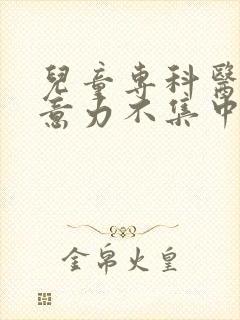 兒童專科醫
意力不集中
金帛火皇